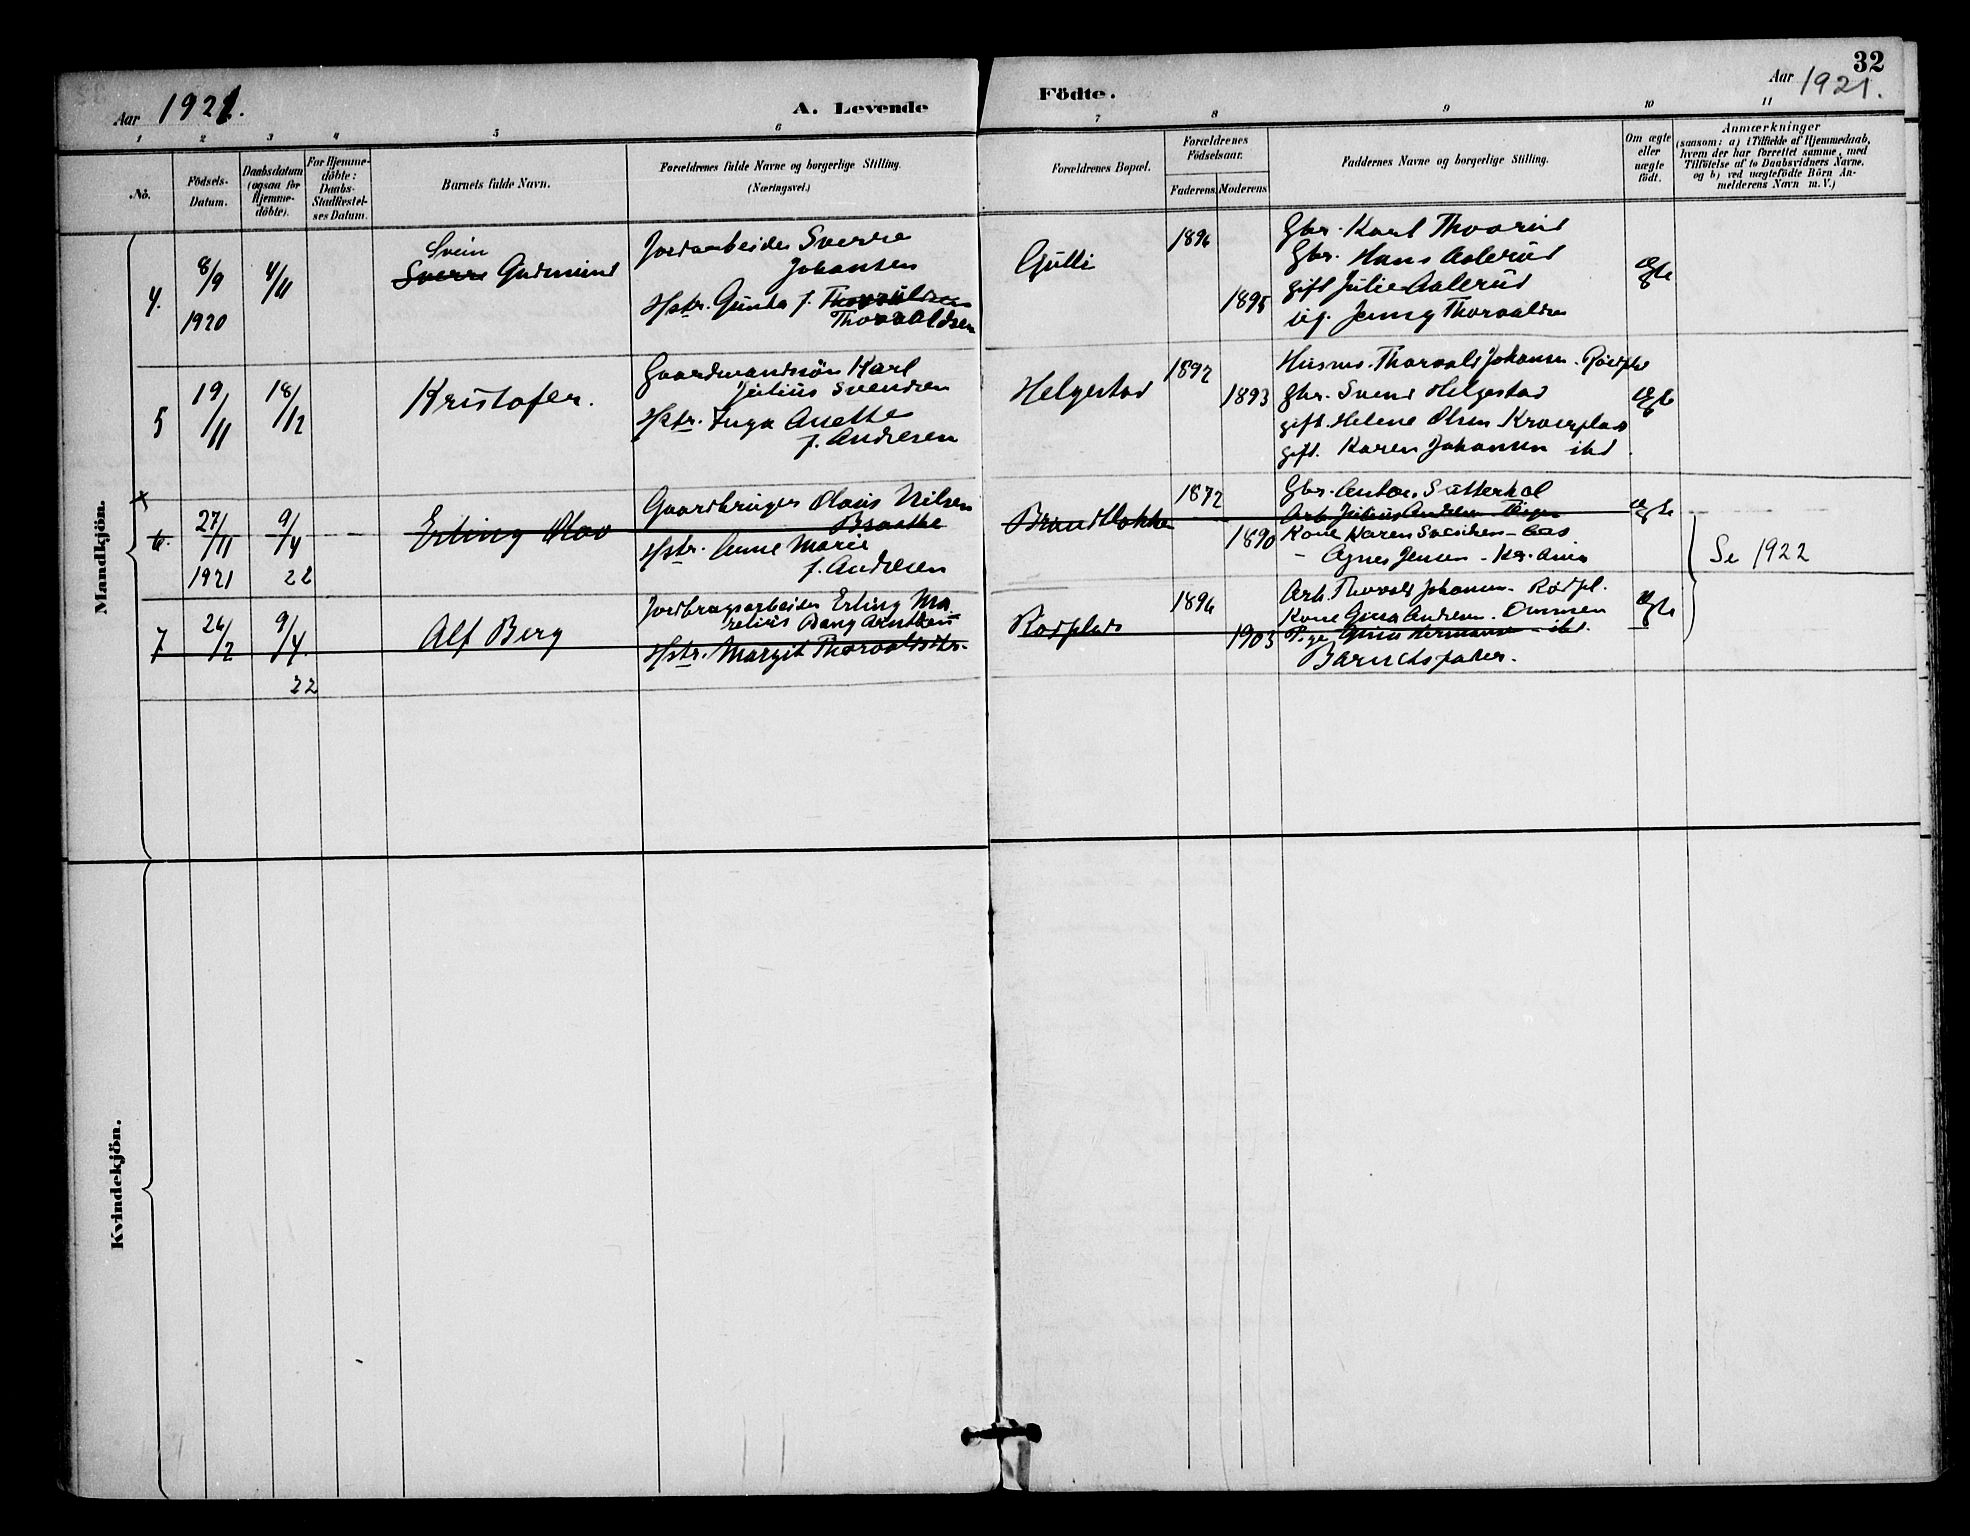 32
Aar 1921.
A. Levende
Födte.
Aar 1921.
1 2 3 4 5 6 7 8 9 10 11
No.
Födsels-
Datum.
Daabsdatum
(ogsaa for
Hjemme-
döbte).
For Hjemme-
döbte:
Daabs-
Stadfestel-
ses Datum.
Barnets fulde Navn.
Forældrenes fulde Navne og borgerlige Stilling.
(Næringsvei.)
Forældrenes Bopæl.
Forældrenes
Födselsaar.
Faderens. Moderens.
Faddernes Navne og borgerlige Stilling.
Om ægte
eller
uægte
födt.
Anmærkninger
(saasom: a) i Tilfælde af Hjemmedaab,
hvem der har forrettet samme, med
Tilföielse af to Daabsvidners Navne,
og b) ved uægtefödte Börn An-
melderens Navn m. V.)
Mandkjön.
4.
8/9
1920
4/11
Svein
Sverre Gudmund
Jordarbeider Sverre
Johansen
Hstr. Gunda f.
Thorvaldsen
Gulli
1896
1895
Gbr. Karl Thoorud
Gbr. Hans Aalerud
gift Julie Aalerud
Jenny Thorvaldsen
ægte
5
19/11
18/12
Kristofer.
Gaardmandssön Karl
Julius Svendsen
Hstr. Inga Anette
f. Andresen
Helgestad
1892
1893
Husm. Thorvald Johansen. Rödpls
Gbr. Svend Helgestad
gift. Helene Olsen
gift. Karen Johansen ibd.
ægte
x
6.
27/11
1921
9/4
22
Erling Olav
Gaardbruger Olaus Nilsen
Braathe
Hstr. Anne Marie
f. Andresen
1872
1890
Gbr. Anton
Arb. Julius Andersen
Kone Karen
- Agnes Jensen -
ægte
Se 1922
7
26/2
9/4.
22
Alf Berg
Jordbrugsarbeider Erling Ma-
relius Bang
Hstr. Margit Thorvaldsdtr.
Rödplads
1896
1903
Arb. Thorvald Johansen. Rödpl.
Kone Gina Andresen.
Pige ibd.
Barnets fader.
ægte
Kvindekjön.